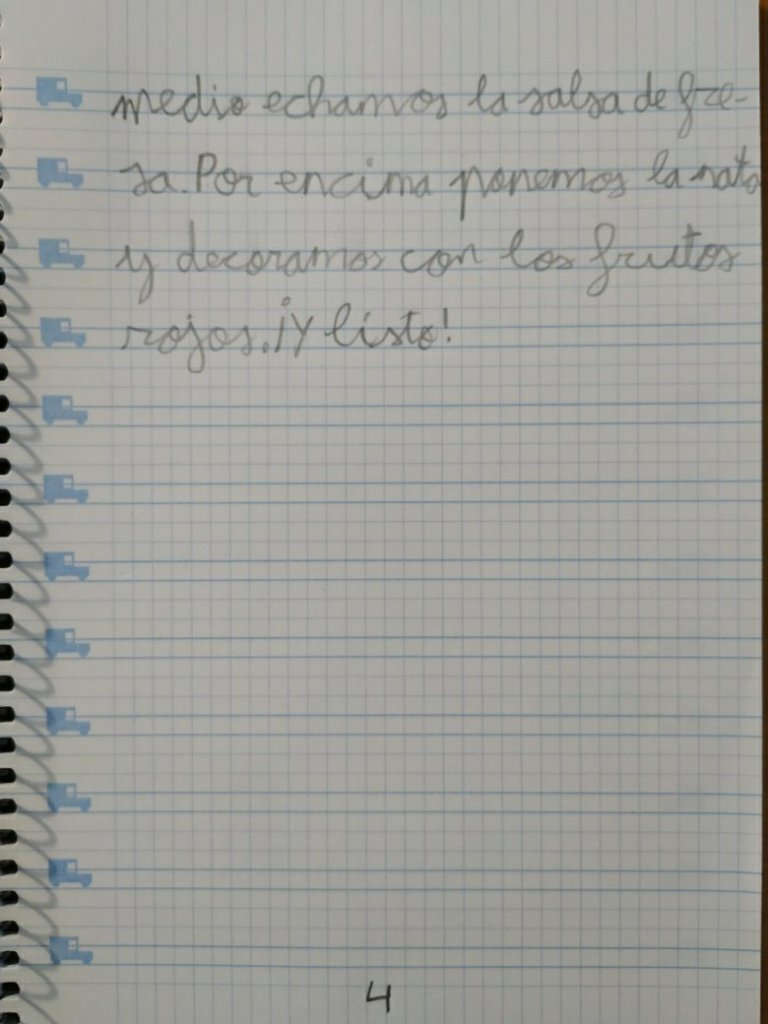 medio echamos la salsa de fre-
sa. Por encima ponemos la nata
y decoramos con los frutos
rojos. ¡Y listo!
4